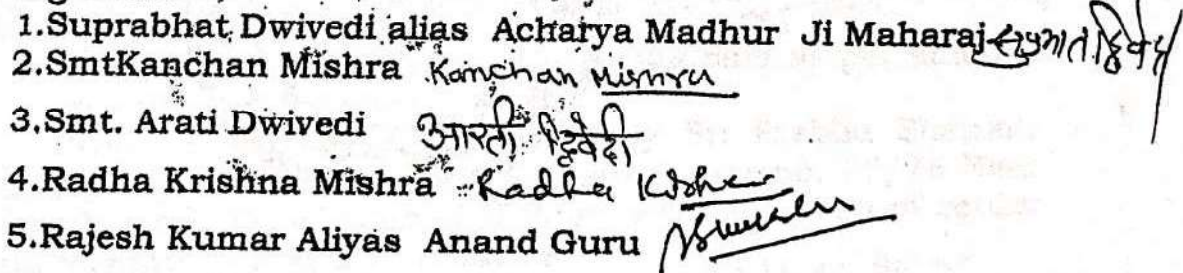 1.Suprabhat Dwivedi alias Acharya Madhur Ji Maharaj सुप्रभात द्विवेदी
2.SmtKanchan Mishra Kanchan Mishra
3.Smt. Arati Dwivedi आरती द्विवेदी
4.Radha Krishna Mishra Radha Krishna
5.Rajesh Kumar Aliyas Anand Guru